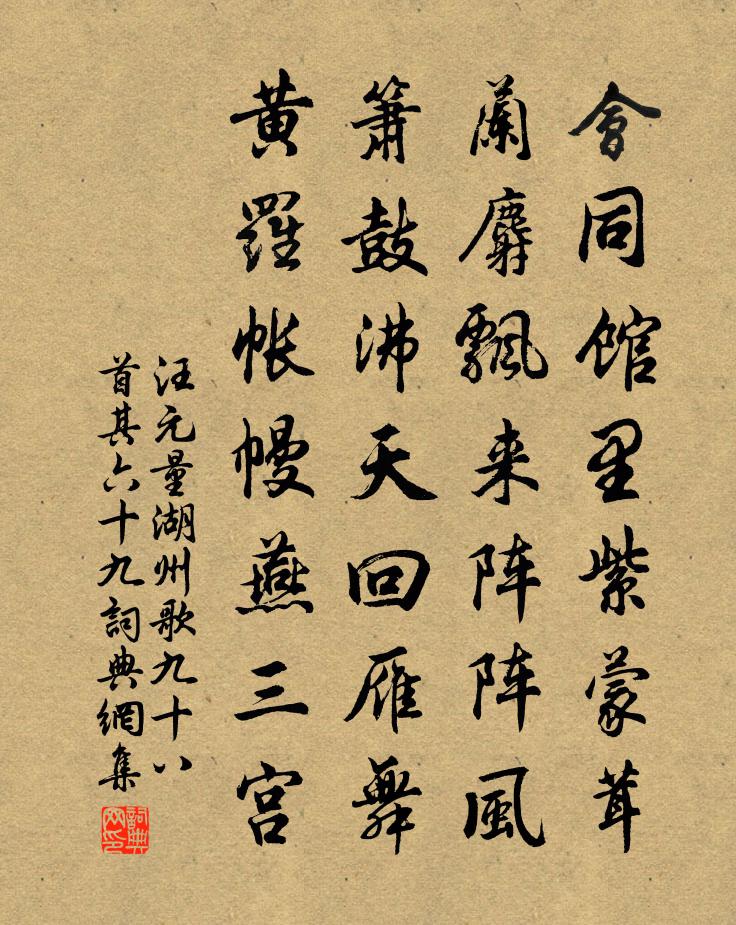 會同館里紫蒙茸
蘭麝飄来阵阵風
簫鼓沸天回雁舞
黄羅帐幔燕三宫
汪元量湖州歌九十八
首其六十九詞典網集
詞典网印